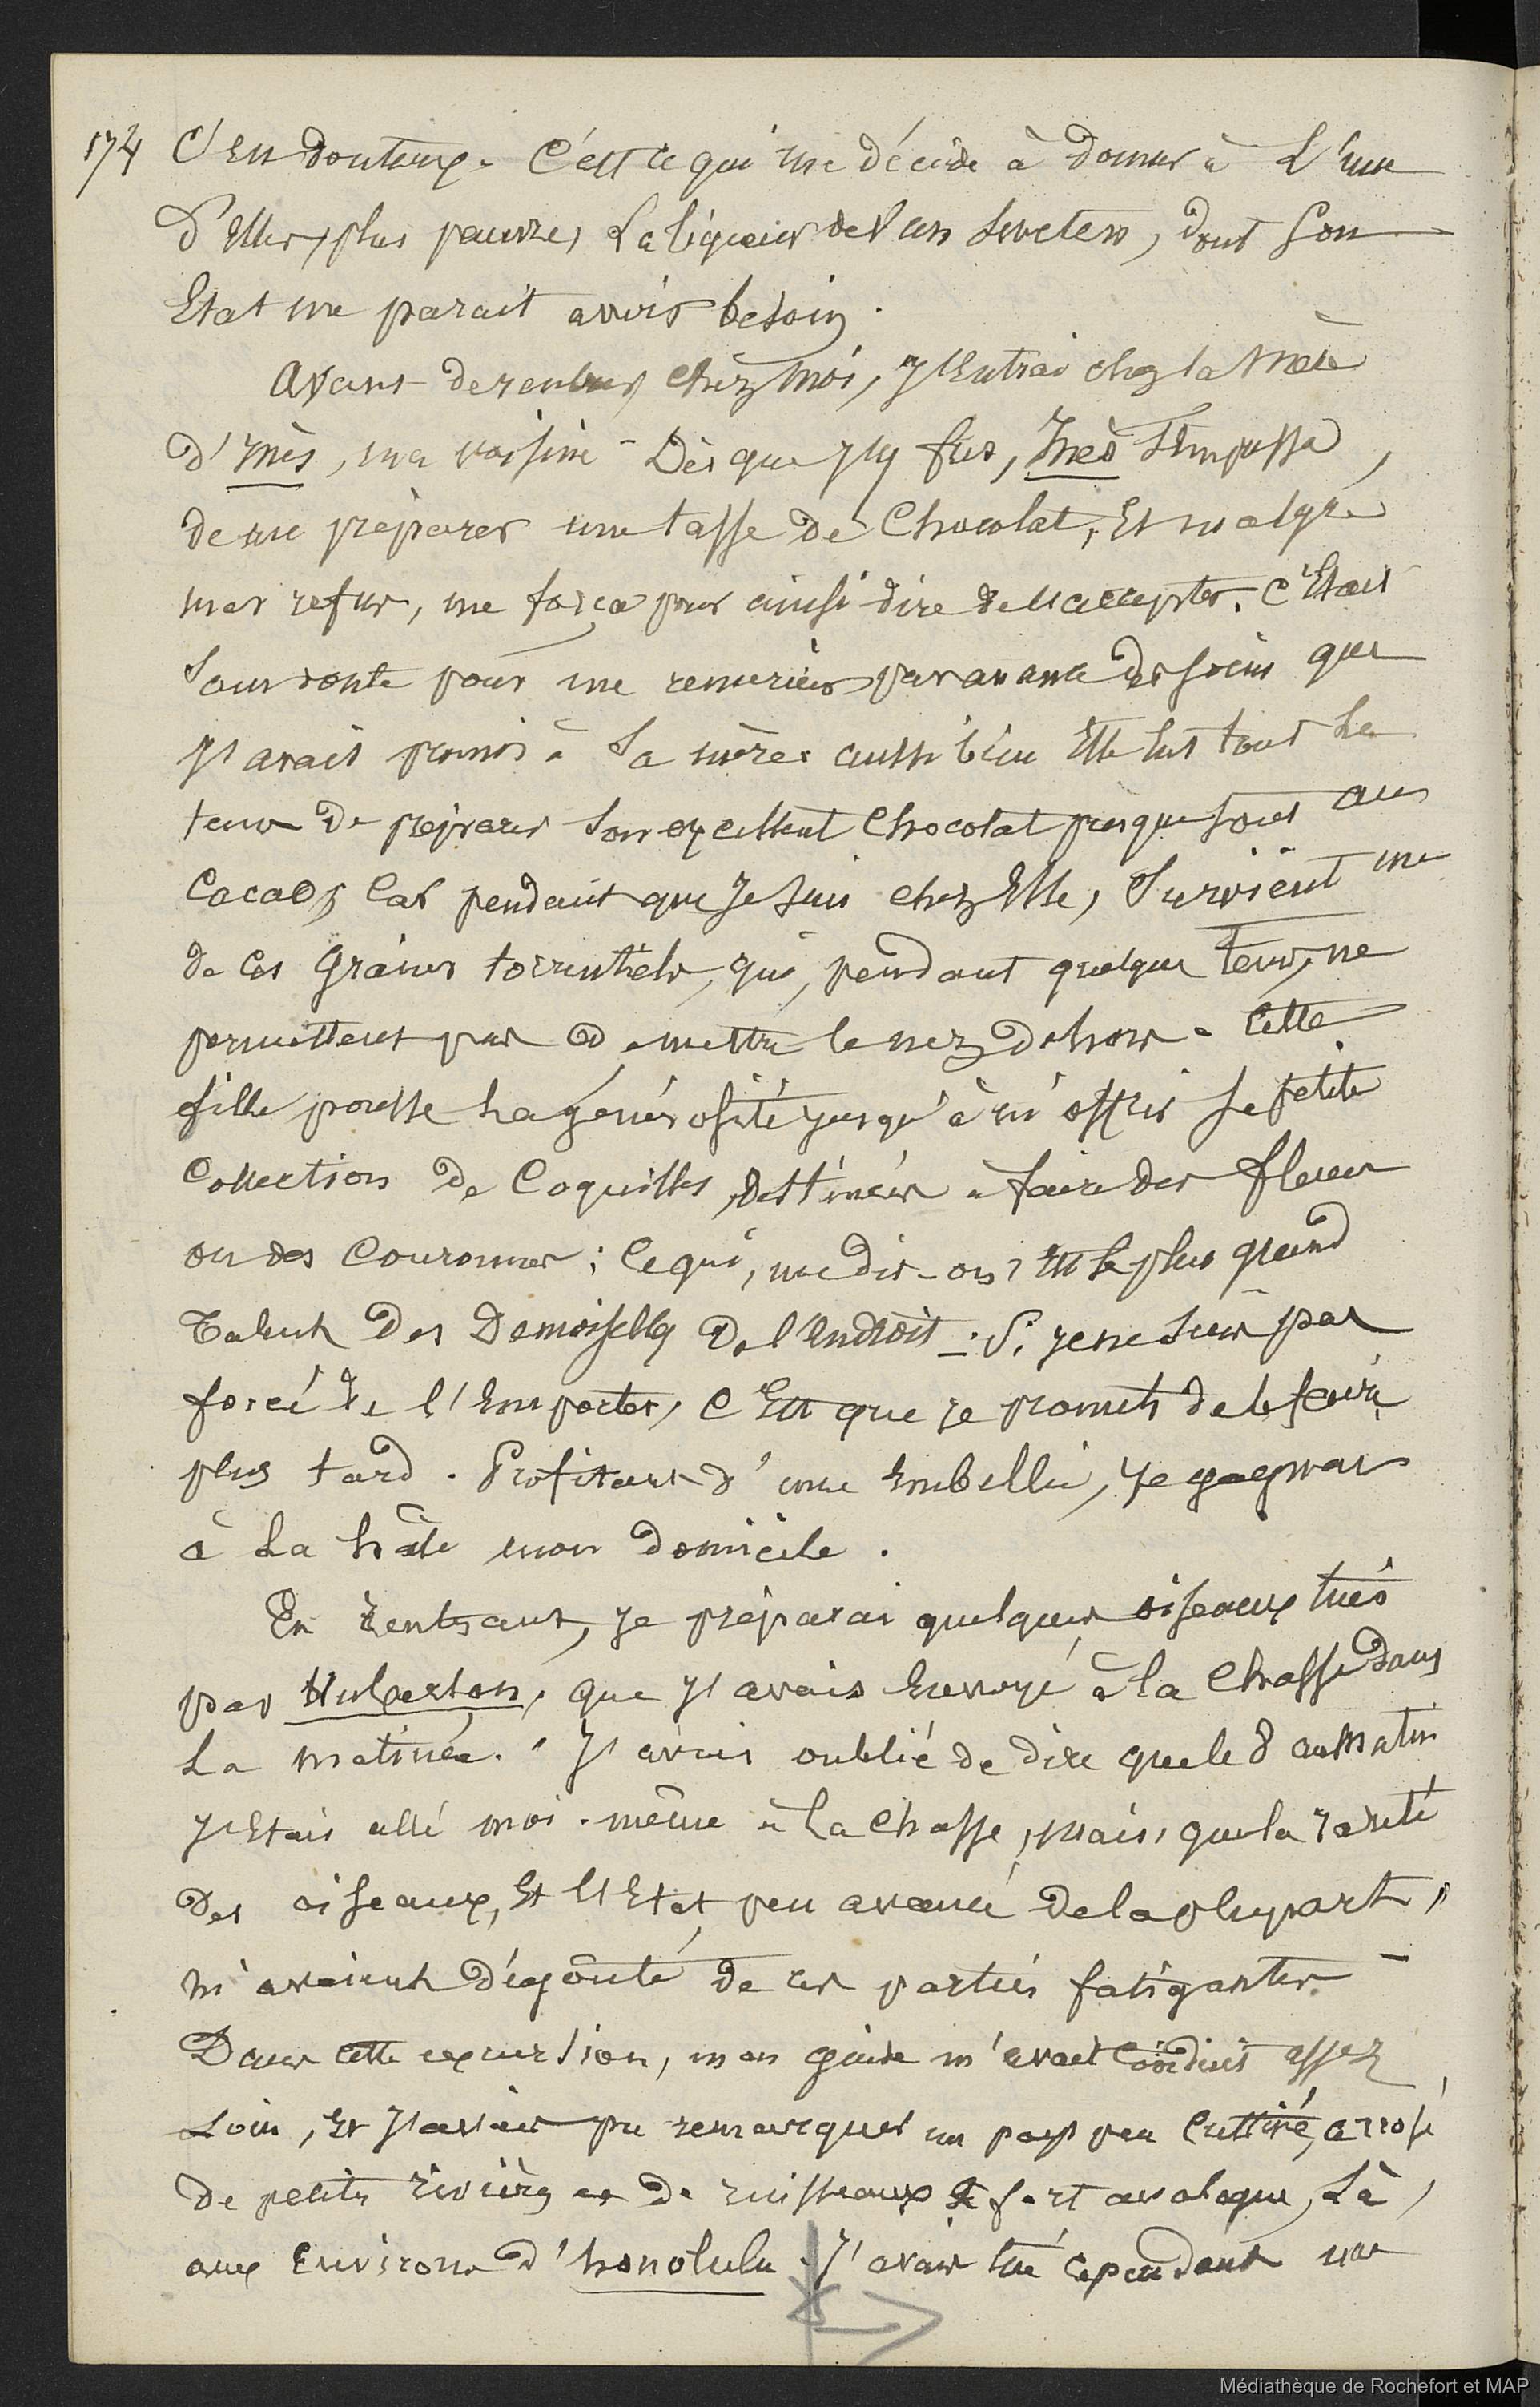 174 C'est douteux. C'est ce qui me décide à donner à l'une
d'elles, plus pauvre, la liqueur de Van Swieten, dont son
Etat me parait avoir besoin.
Avant de rentrer chez moi, j'entrai chez la mère
d'Inès, ma voisine - Dès que j'y fus, Inès s'empressa,
de me préparer une tasse de Chocolat, Et malgré
mes refus, me força pour ainsi dire de l'accepter. C'Etait
sans doute pour me remercier par avance des soins que
j'avais promis à sa mère: aussi bien Elle eut tout le
tems de préparer son excellent Chocolat presque tout au
Cacao, Car pendant que je suis chez Elle, Survient un
de ces Grains torrentiels, qui, pendant quelque tems, ne
permettent pas de mettre le nez dehors - Cette
fille pousse la générosité jusqu'à m'offrir sa petite
Collection de Coquilles, destinées à faire des fleurs
ou des Couronnes; Ce qui, me dit-on, Est le plus grand
Talent des Demoiselles de l'Endroit -. Si je ne suis pas
forcé de l'Emporter, C'Est que je promets de le faire
plus tard. Profitant d'une Embellie, je gagnai
à la hâte mon domicile.
En rentrant, je préparai quelques oiseaux tués
par Huberton, que j'avais Envoyé à la Chasse dans
la matinée. " J'avais oublié de dire que le 8 au Matin
j'Etais allé moi-même à la Chasse, Mais, que la rareté
des oiseaux, Et l'Etat peu avancé de la plupart,
m'avaient dégouté de ces parties fatigantes
Dans cette excursion, mon guide m'avait Conduit assez
Loin, Et j'avais pu remarquer un pays peu Cultivé, arrosé
de petites rivières et de ruisseaux fort analogue, là,
aux Environs d'honolulu. J'avais tué cependant une
Médiathèque de Rochefort et MAP